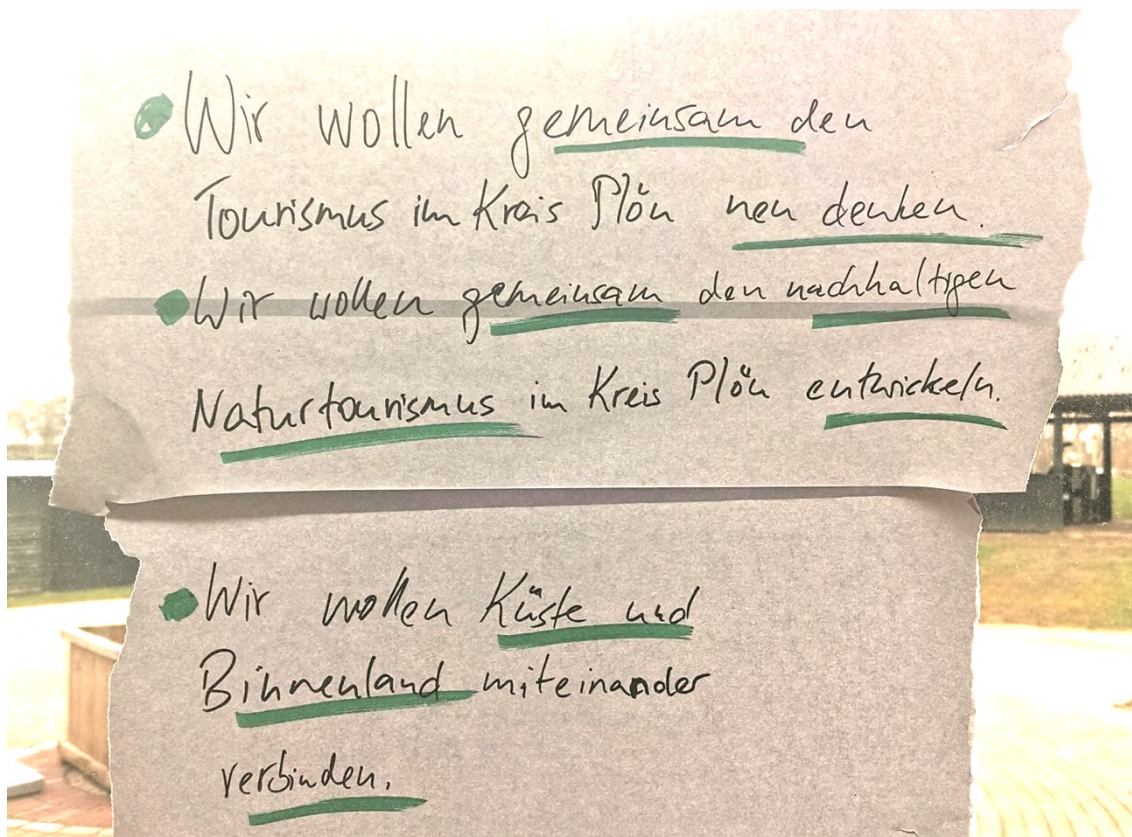 Wir wollen gemeinsam den
Tourismus im Kreis Plön neu denken.
Wir wollen gemeinsam den nachhaltigen
Naturtourismus im Kreis Plön entwickeln.
Wir wollen Küste und
Binnenland miteinander
verbinden.